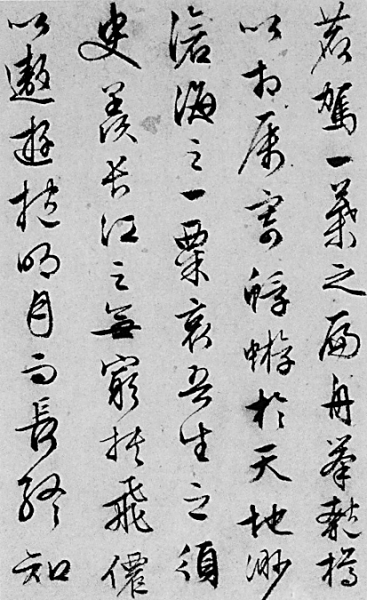 鹿駕一葉之扁舟舉匏樽
以相属寄蜉蝣於天地渺
滄海之一粟哀吾生之須
臾羨長江之無窮挟飛僊
以遨遊抱明月而長終知